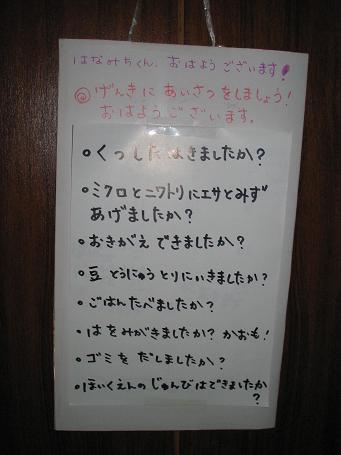 はなみちくん、おはようございます!
◎げんきにあいさつをしましょう!
おはようございます。
・くつしたはきましたか?
・ミクロとニワトリにエサとみず
あげましたか?
・おきがえできましたか?
・豆とうにゅうとりにいきましたか?
・ごはんたべましたか?
・はをみがきましたか?かおも!
・ゴミをだしましたか?
・ほいくえんのじゅんびはできましたか
?